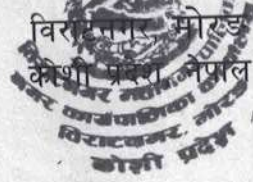 विराटनगर, मोरङ
कोशी प्रदेश, नेपाल
विराटनगर महानगरपालिका
नगर कार्यपालिकाको
विराटनगर, मोरङ
कोशी प्रदेश